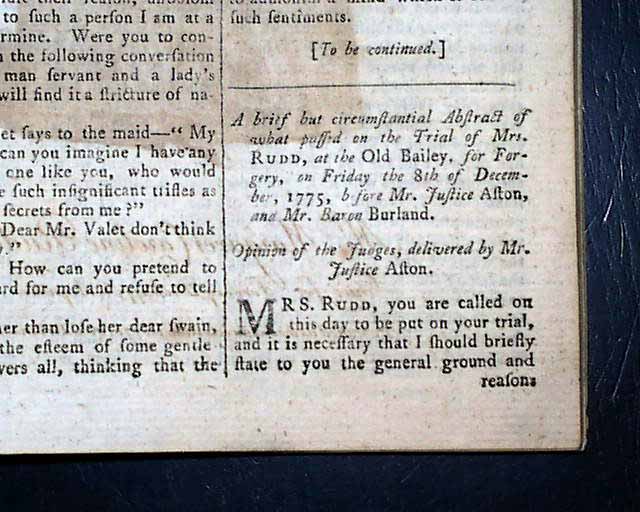 to such a person I am at a
ermine. Were you to con-
n the following conversation
man servant and a lady's
will find it a ſtricture of na-
et says to the maid—“ My
can you imagine I have any
one like you, who would
e ſuch inſignificant trifles as
ſecrets from me ?”
Dear Mr. Valet don't think
.”
How can you pretend to
rd for me and refuſe to tell
er than loſe her dear ſwain,
the eſteem of ſome gentle
vers all, thinking that the
ſuch ſentiments.
[To be continued.]
A brief but circumſtantial Abſtract of
what paſſ'd on the Trial of Mrs.
RUDD, at the Old Bailey, for For-
gery, on Friday the 8th of Decem-
ber, 1775, before Mr. Juſtice Aſton,
and Mr. Baron Burland.
Opinion of the Judges, delivered by Mr.
Juſtice Aſton.
MRS. RUDD, you are called on
this day to be put on your trial,
and it is neceſſary that I ſhould briefly
ſtate to you the general ground and
reaſons